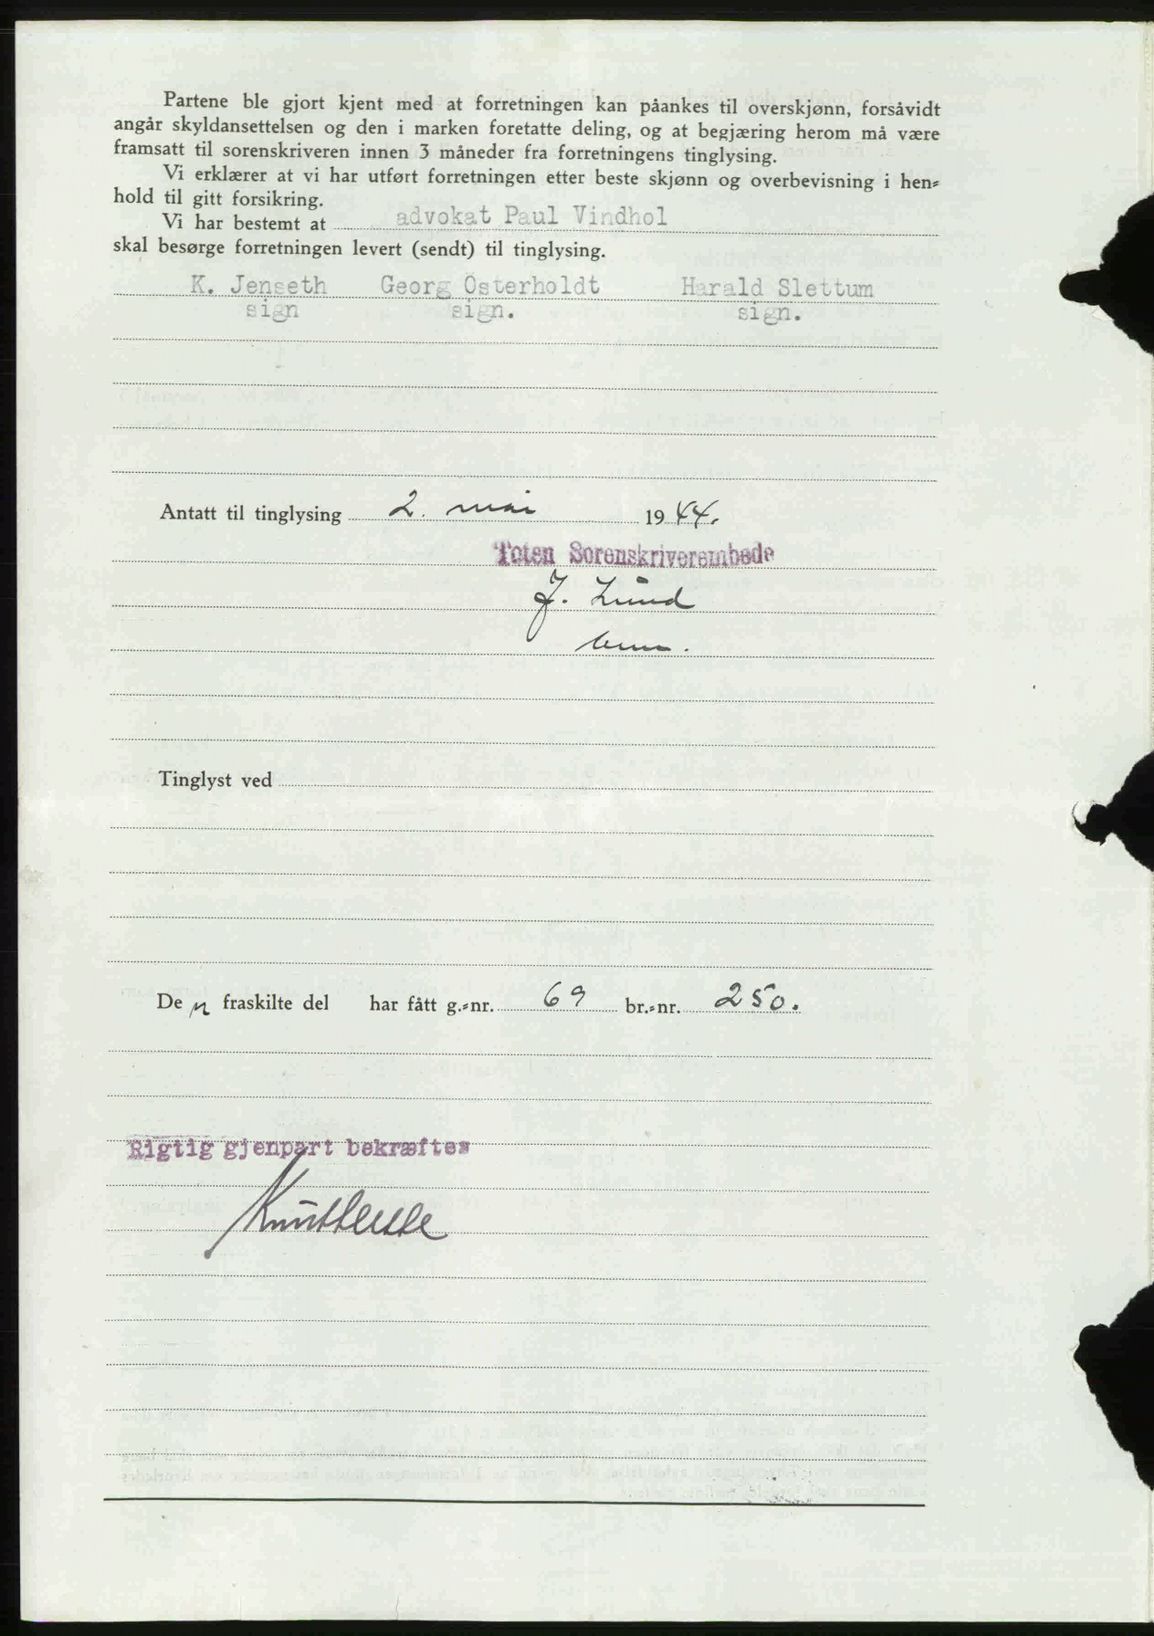 Partene ble gjort kjent med at forretningen kan påankes til overskjønn, forsåvidt
angår skyldansettelsen og den i marken foretatte deling, og at begjæring herom må være
framsatt til sorenskriveren innen 3 måneder fra forretningens tinglysing.
Vi erklærer at vi har utført forretningen etter beste skjønn og overbevisning i hen=
hold til gitt forsikring.
Vi har bestemt at advokat Paul Vindhol
skal besørge forretningen levert (sendt) til tinglysing.
K. Jenseth Georg Osterholdt Harald Slettum
sign sign. sign.
Antatt til tinglysing 2. mai 1944.
Toten Sorenskriverembede
J. Lund
Tinglyst ved
De n fraskilte del har fått g.=nr. 69 br.=nr. 250.
Rigtig gjenpart bekræftes